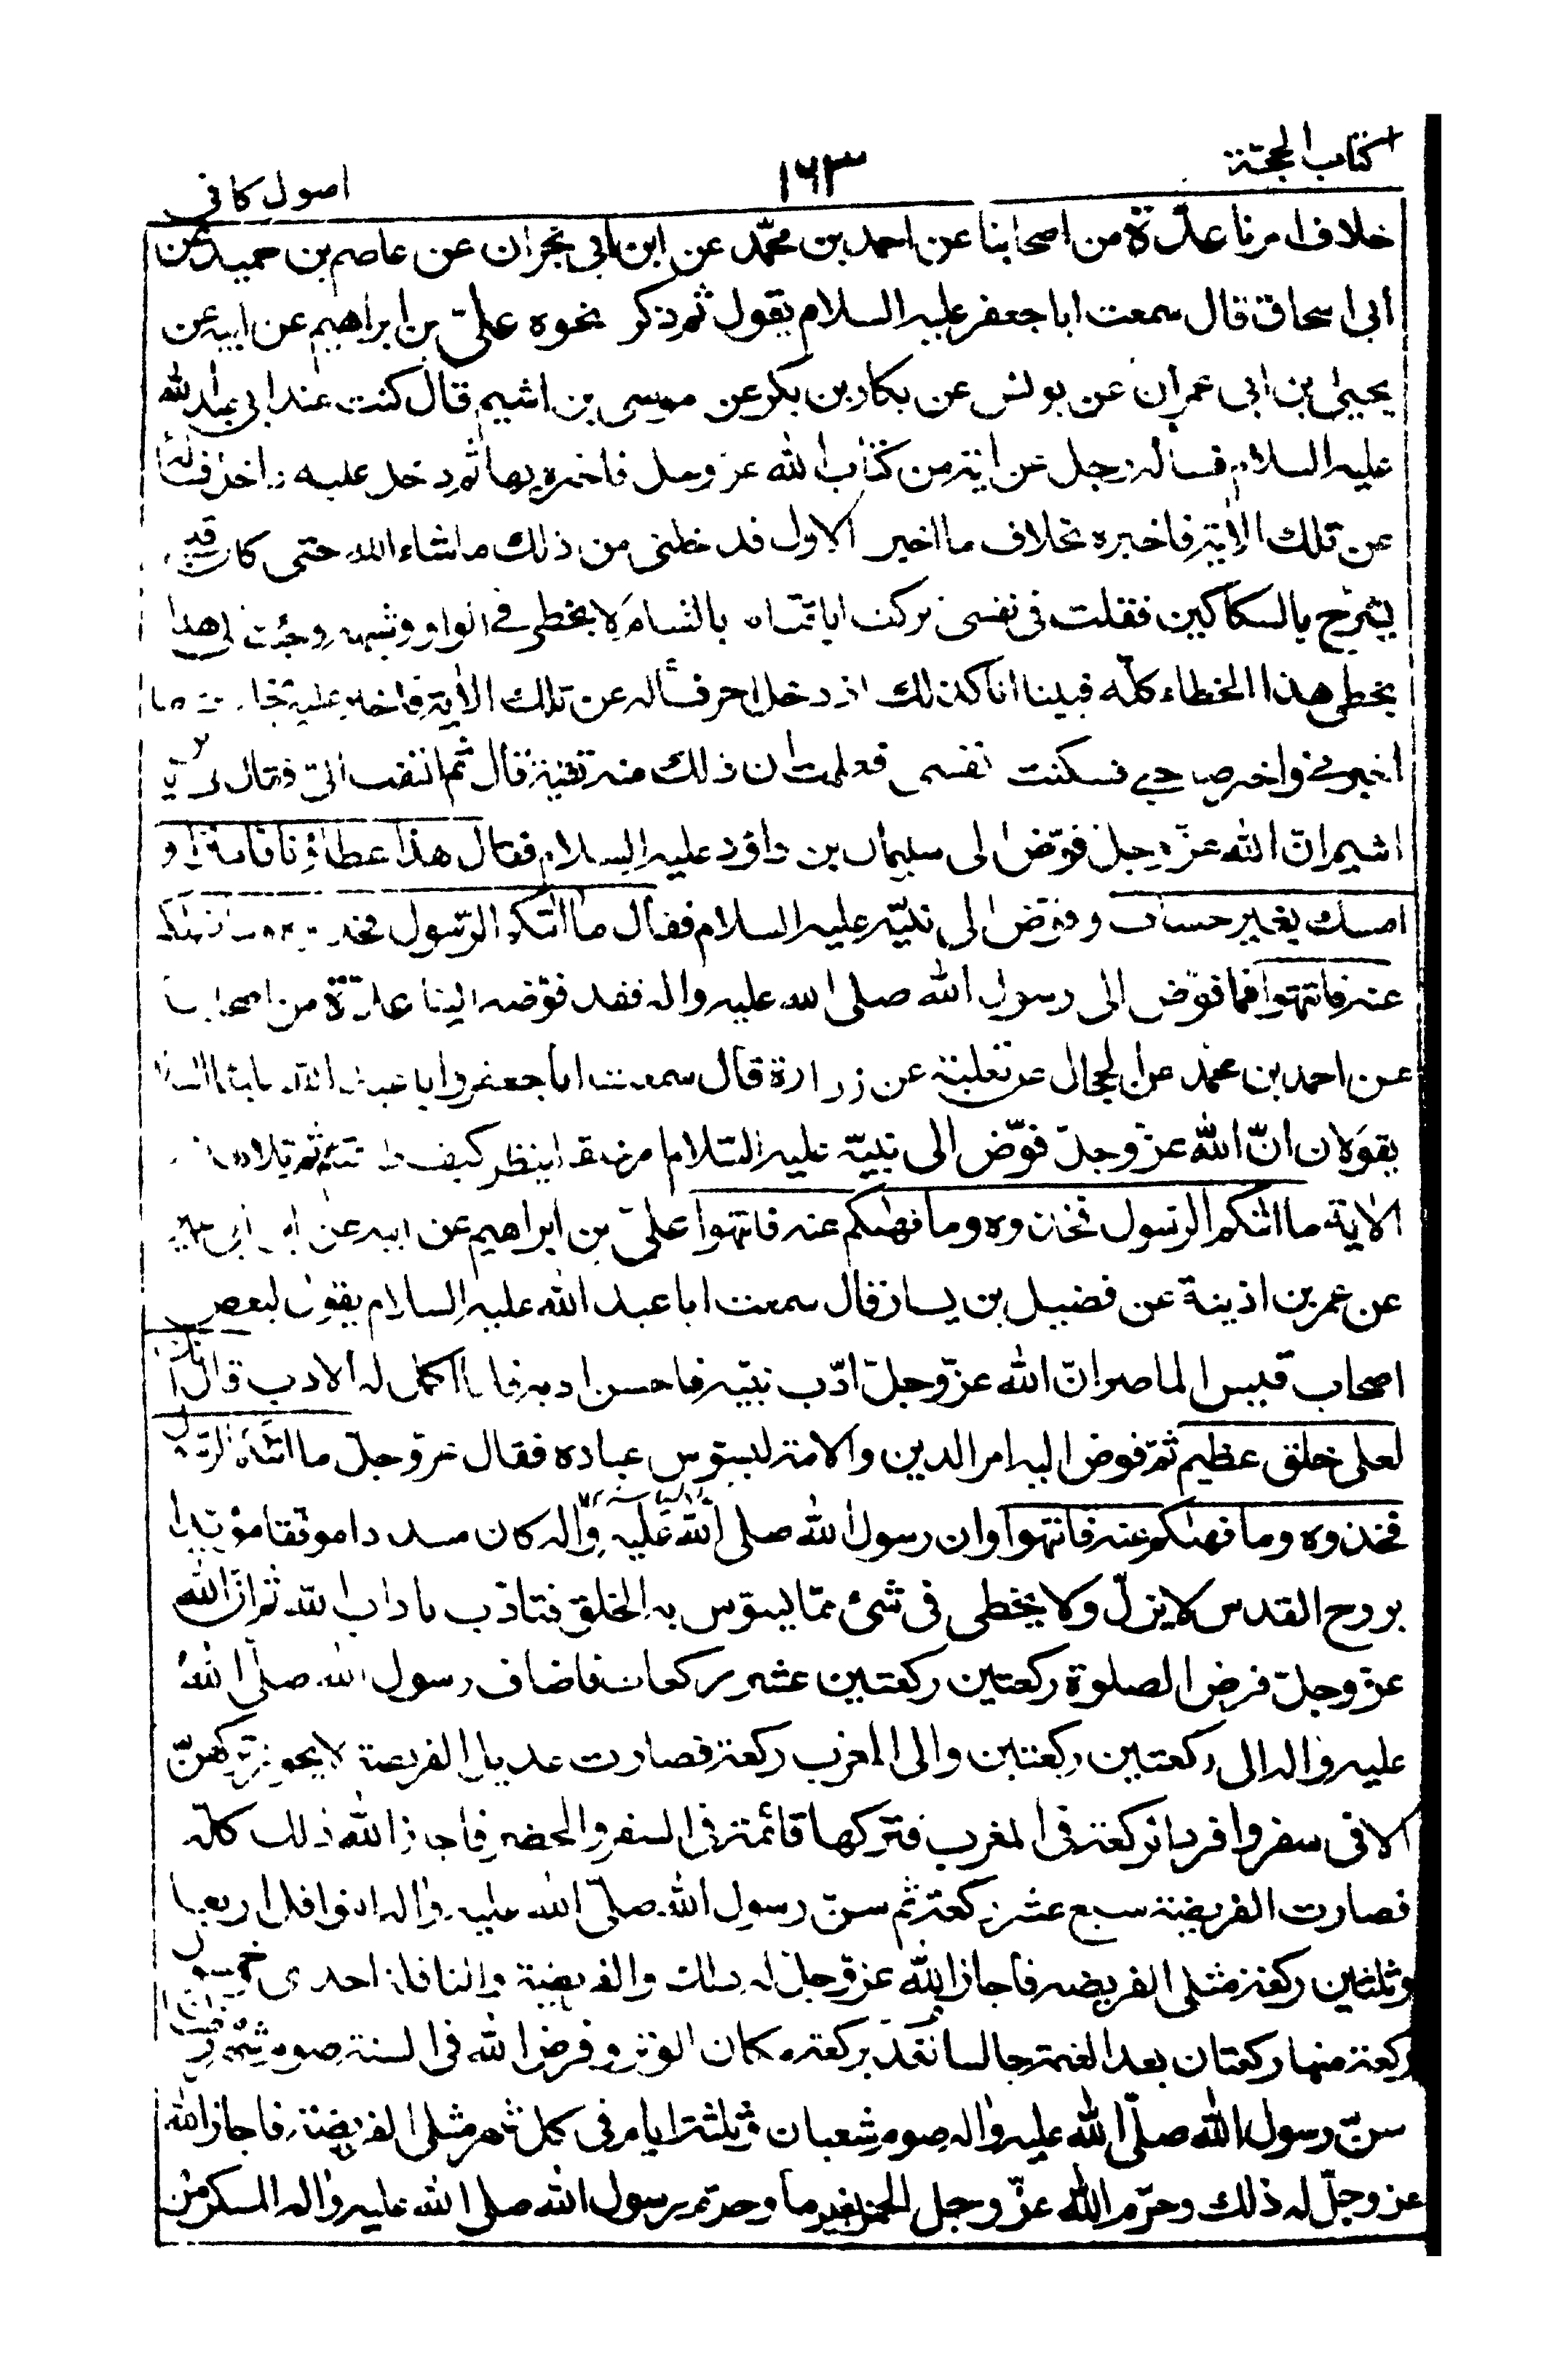 كتاب الحجة
١٦٣
اصول كافى
خلاف امرنا عدّة من اصحابنا عن احمد بن محمّد عن ابن ابى نجران عن عاصم بن حميد عن
ابى اسحاق قال سمعت ابا جعفر عليه السلام يقول ثم ذكر نحوه علىّ بن ابراهيم عن ابيه عن
يحيى بن ابى عمران عن يونس عن بكار بن بكر عن موسى بن اشيم قال كنت عند ابى عبد الله
عليه السلام فساله رجل عن اية من كتاب الله عز وجل فاخبره بها ثم دخل عليه داخل فسأله
عن تلك الاية فاخبره بخلاف ما اخبر الاول فدخلنى من ذلك ماشاء الله حتى كان قلبى
يشرح بالسكاكين فقلت فى نفسى تركت ابا قتاده بالشام لا يخطى فى الواو وشبهه وجئت الى هذا
يخطى هذا الخطاء كلّه فبينا انا كذلك اذ دخل اخر فسأله عن تلك الاية فاخبره بخلاف ما
اخبرنى واخبر صاحبى فسكنت نفسى فعلمت ان ذلك منه تقية قال ثم التفت الىّ فقال لى يا
اشيم انّ الله عزّ وجلّ فوّض الى سليمان بن داؤد عليه السلام فقال هذا عطاؤنا فامنن او
امسك بغير حساب وفوّض الى نبيّه عليه السلام فقال ما اتٰكم الرّسول فخذوه وما نهٰكم
عنه فانتهوا فما فوّض الى رسول الله صلى الله عليه واله فقد فوّضه الينا عدّة من اصحابنا
عن احمد بن محمد عن الحجال عن ثعلبة عن زرارة قال سمعت ابا جعفر وابا عبد الله عليهما السلام
يقولان انّ الله عزّ وجلّ فوّض الى نبيّه عليه السّلام امر خلقه لينظر كيف طاعتهم ثم تلا هذه
الاية ما اتٰكم الرسول فخذوه وما نهٰكم عنه فانتهوا علىّ بن ابراهيم عن ابيه عن ابن ابى عمير
عن عمر بن اذينة عن فضيل بن يسار قال سمعت ابا عبد الله عليه السلام يقول لبعض
اصحاب قيس الماصر انّ الله عزّ وجلّ ادّب نبيّه فاحسن ادبه فلما اكمل له الادب قال انّك
لعلى خلق عظيم ثمّ فوض اليه امر الدين والامة ليسوّس عباده فقال عزّ وجلّ ما اتٰكم الرّسول
فخذوه وما نهٰكم عنه فانتهوا وان رسول الله صلى الله عليه واله كان مسددا موفقا مؤيّدا
بروح القدس لا يزلّ ولا يخطى فى شئ ممّا يسوّس به الخلق فتادّب باداب الله ثم انّ الله
عزّ وجلّ فرض الصلوة ركعتين ركعتين عشر ركعات فاضاف رسول الله صلّى الله
عليه واله الى ركعتين ركعتين والى المغرب ركعة فصارت عديل الفريضة لا يجوز تركهنّ
الا فى سفر وافرد الركعة فى المغرب فتركها قائمة فى السفر والحضر فاجاز الله ذلك كلّه
فصارت الفريضة سبع عشرة ركعة ثم سنّ رسول الله صلّى الله عليه واله النوافل اربعا
وثلثين ركعة مثلى الفريضه فاجاز الله عز وجل له ذلك والفريضة والنافلة احدى وخمسون
ركعة منها ركعتان بعد العتمة جالسا تعدّ بركعة مكان الوتر وفرض الله فى السنة صوم شهر رمضان
سنّ رسول الله صلّى الله عليه واله صوم شعبان وثلثة ايام فى كل شهر مثلى الفريضة فاجاز الله
عز وجلّ له ذلك وحرّم الله عزّ وجل الخمر بعينها وحرّم رسول الله صلى الله عليه واله المسكر من